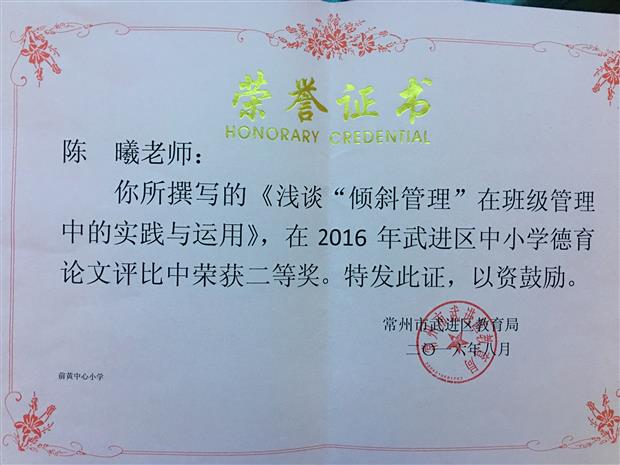 荣誉证书
HONORARY CREDENTIAL
陈 曦老师：
你所撰写的《浅谈“倾斜管理”在班级管理
中的实践与运用》，在 2016 年武进区中小学德育
论文评比中荣获二等奖。特发此证，以资鼓励。
常州市武进区教育局
二〇一六年八月
前黄中心小学